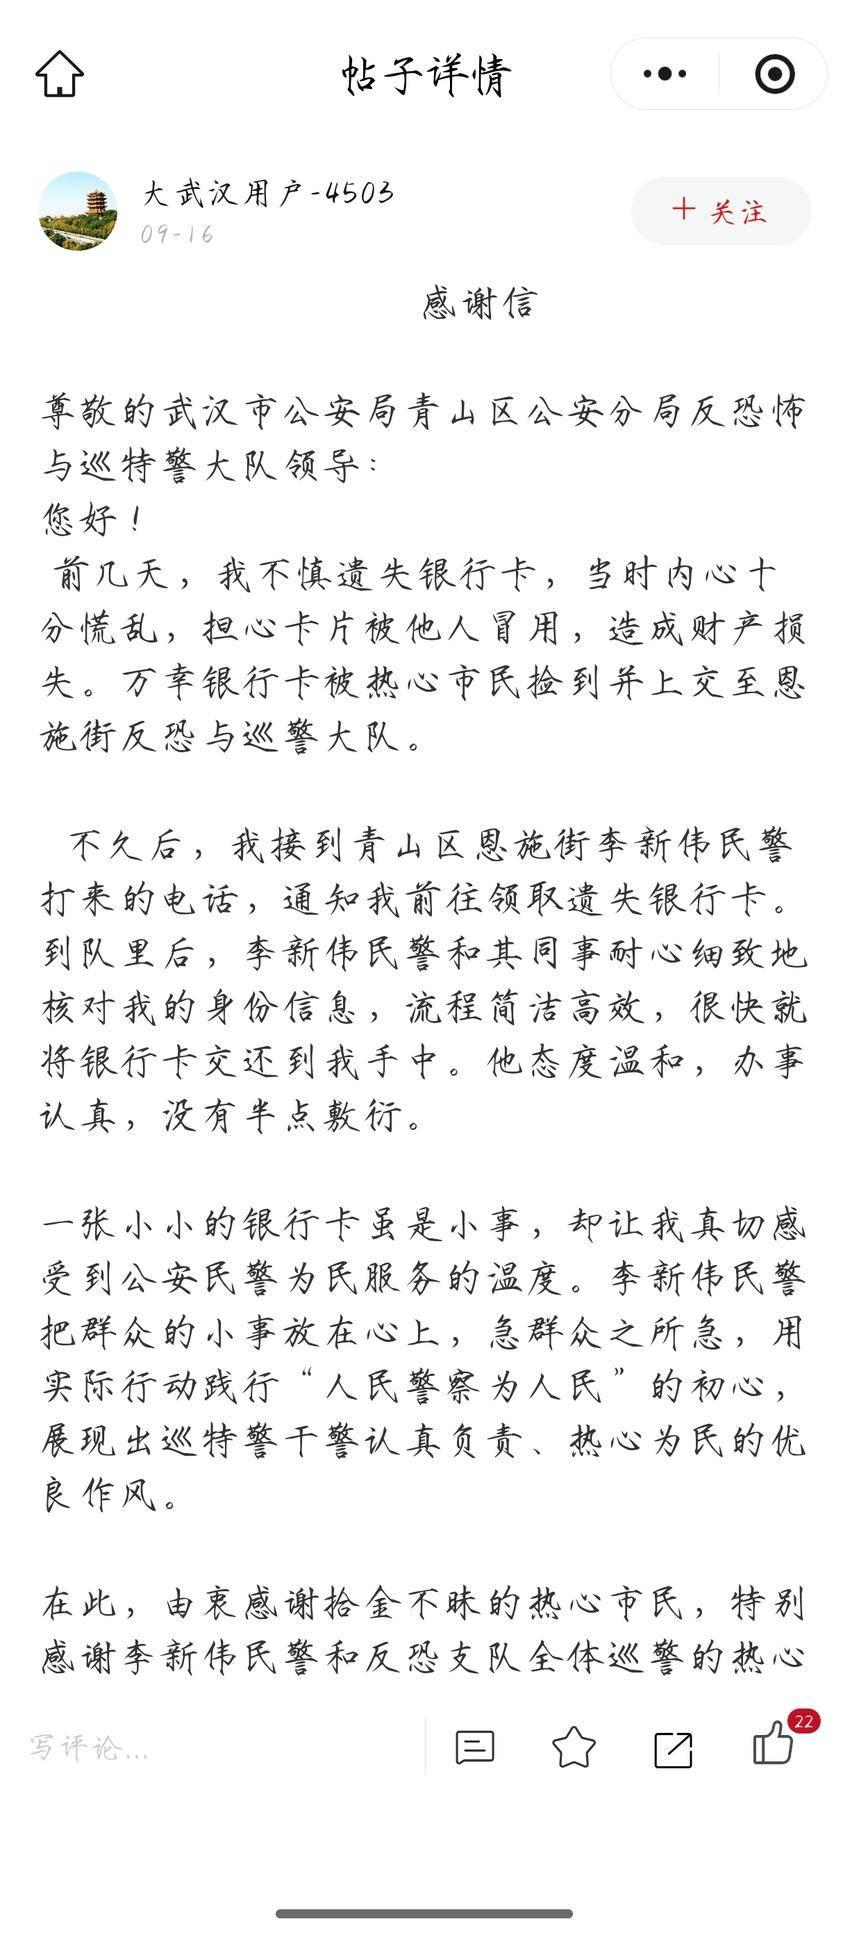 帖子详情
大武汉用户-4503
09-16
+ 关注
感谢信
尊敬的武汉市公安局青山区公安分局反恐怖
与巡特警大队领导：
您好！
前几天，我不慎遗失银行卡，当时内心十
分慌乱，担心卡片被他人冒用，造成财产损
失。万幸银行卡被热心市民捡到并上交至恩
施街反恐与巡警大队。
不久后，我接到青山区恩施街李新伟民警
打来的电话，通知我前往领取遗失银行卡。
到队里后，李新伟民警和其同事耐心细致地
核对我的身份信息，流程简洁高效，很快就
将银行卡交还到我手中。他态度温和，办事
认真，没有半点敷衍。
一张小小的银行卡虽是小事，却让我真切感
受到公安民警为民服务的温度。李新伟民警
把群众的小事放在心上，急群众之所急，用
实际行动践行“人民警察为人民”的初心，
展现出巡特警干警认真负责、热心为民的优
良作风。
在此，由衷感谢拾金不昧的热心市民，特别
感谢李新伟民警和反恐支队全体巡警的热心
写评论...
22